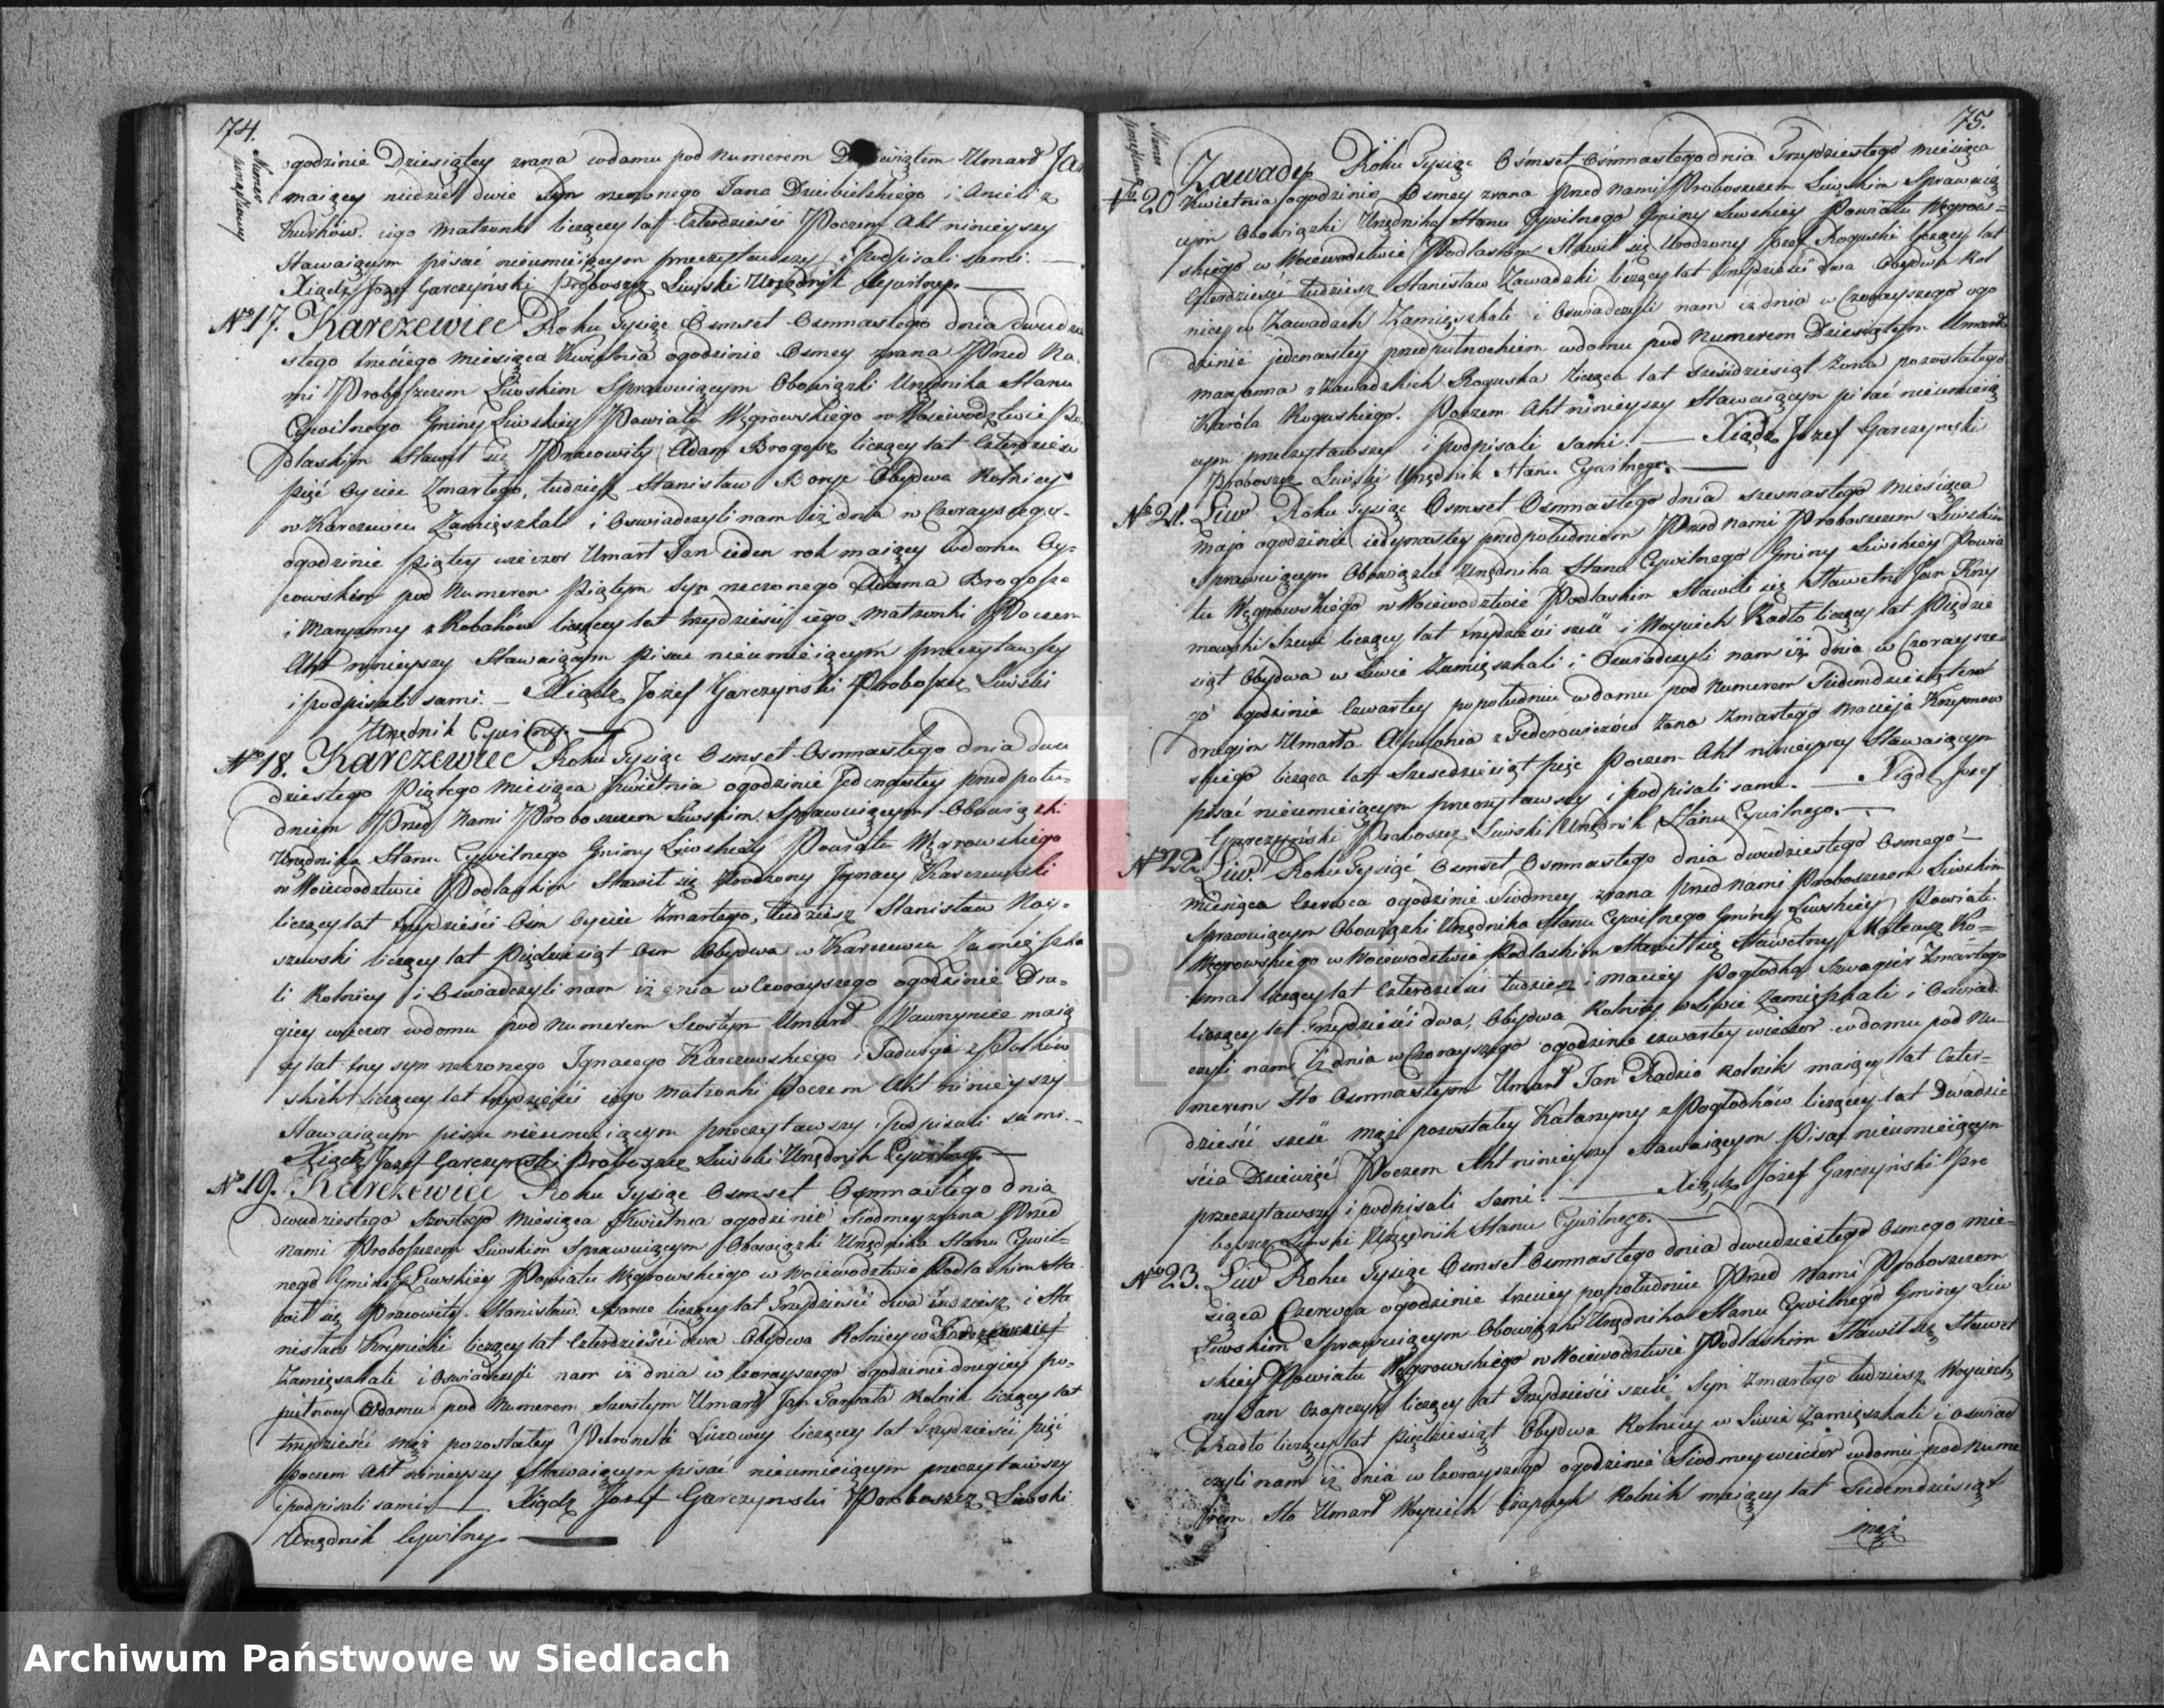 74.
Numer porządkowy
ogodzinie Dziesiątey zrana wdomu pod Numerem Umarł Jan
maiący niedziel dwie Syn rzeczonego Jana Dziebielskiego i Anieli z
Kurków iego Matzonki liczący lat Czterdzieści Poczem Akt ninieyszy
Stawaiącym pisać nieumieiącym przeczytawszy i Podpisali sami. —
Xiądz Józef Garczyński Proboszcz Liwski Urzędnik Cywilny. —
No 17. Karczewiec Roku Tysiąc Osmset Osmnastego dnia dwudzie
stego trzeciego Miesiąca Kwietnia ogodzinie Osmey zrana Przed Na
mi Proboszczem Liwskim Sprawuiącym Obowiązki Urzędnika Stanu
Cywilnego Gminy Liwskiey Powiatu Węgrowskiego w Woiewodztwie Po
dlaskim Stawił się Pracowity Adam Brogosz liczący lat Czterdzieści
pięć Oyciec Zmarłego, tudzież Stanisław Boryc Obydwa Rolnicy
w Karczewcu Zamięszkali i Oswiadczyli nam iż dnia w Czorayszego
ogodzinie piątey wieczor Umarł Jan ieden rok maiący wdomu Oy-
cowskim pod Numerem Piątym Syn rzeczonego Adama Brogosza
i Maryanny z Robaków liczącey lat trzydzieści iego Matzonki Poczem
Akt ninieyszy Stawaiącym pisać nieumieiącym przeczytawszy
i podpisali sami. — Xiądz Józef Garczyński Proboszcz Liwski
Urzędnik Cywilny. —
No 18. Karczewiec Roku Tysiąc Osmset Osmnastego dnia dwu
dziestego Piątego Miesiąca Kwietnia ogodzinie Jedenastey przed połu-
dniem Przed Nami Proboszczem Liwskim Sprawuiącym Obowiązki
Urzędnika Stanu Cywilnego Gminy Liwskiey Powiatu Węgrowskiego
w Woiewodztwie Podlaskim Stawił się Urodzony Ignacy Karczewski
liczący lat trzydzieści Osm Oyciec Zmarłego, tudziesz Stanisław Roy-
szewski liczący lat Pięcdziesiąt Osm Obydwa w Karczewcu Zamięszka
li Rolnicy i Oswiadczyli nam iż dnia wczorayszego ogodzinie Dru-
giey wieczor wdomu pod Numerem Szostym Umarł Wawrzyniec maią
cy lat trzy syn rzeczonego Ignacego Karczewskiego i Jadwigi z
skich liczącey lat trzydzieści iego Matzonki Poczem Akt ninieyszy
Stawaiącym pisać nieumieiącym przeczytawszy i Podpisali sami. -
Xiądz Jozef Garczynski Proboszcz Liwski Urzędnik Cywilny. —
No 19. Karczewiec Roku Tysiąc Osmset Osmnastego dnia
dwudziestego Szostego Miesiąca Kwietnia ogodzinie Siodmey zrana Przed
Nami Proboszczem Liwskim Sprawuiącym Obowiązki Urzędnika Stanu Cywil-
nego Gminy Liwskiey Powiatu Węgrowskiego w Woiewodztwie Podlaskim Sta
wił się Pracowity Stanisław liczący lat Trzydzieści dwa tudziesz i Sta
nisław Krysicki liczący lat Czterdzieści dwa Obydwa Rolnicy w Karczewcu
Zamięszkali i Oswiadczyli nam iż dnia wczorayszego ogodzinie drugiey po-
pułnocy wdomu pod Numerem Szostym Umarł Jan Rolnik liczący lat
trzydzieści mąż pozostałey Petroneli liczącey lat Trzydzieści pięć
Poczem Akt ninieyszy Stawaiącym pisać nieumieiącym przeczytawszy
i podpisali sami. — Xiądz Jozef Garczynski Proboszcz Liwski
Urzędnik Cywilny. —
75.
Numer porządkowy
No 20 Zawady Roku Tysiąc Ośmset Ośmnastego dnia Trzydziestego Miesiąca
Kwietnia ogodzinie Osmey zrana Przed nami Proboszczem Liwskim Sprawuią
cym Obowiązki Urzędnika Stanu Cywilnego Gminy Liwskiey Powiatu Węgrow-
skiego w Woiewodztwie Podlaskim Stawił się Urodzony Józef Roguski liczący lat
Czterdzieści tudziesz Stanisław Zawadzki liczący lat trzydzieści dwa Obydwa Rol
nicy w Zawadach Zamięszkali i Oswiadczyli nam iż dnia w Czorayszego ogo
dzinie jedenastey przed pułnockiem wdomu pod Numerem Dziesiątym Umarła
Maryanna z Zawadzkich Roguska licząca lat sześćdziesiąt Zona pozostałego
Karóla Roguskiego. Poczem Akt ninieyszy Stawaiącym pisać nieumieią
cym przeczytawszy i podpisali sami. — Xiądz Józef Garczynski
Proboszcz Liwski Urzędnik Stanu Cywilnego. —
No 21. Liw Roku Tysiąc Osmset Osmnastego dnia szesnastego Miesiąca
Maja ogodzinie iedynastey przed południem Przed nami Proboszczem Liwskim
Sprawuiącym Obowiązki Urzędnika Stanu Cywilnego Gminy Liwskiey Powia
tu Węgrowskiego w Woiewodztwie Podlaskim Stawili się Sławetni Jan Krzy
mowski Szewc liczący lat trzydzieści sześć i Woyciech Radło liczący lat Pięćdzie
siąt Obydwa w Liwie Zamięszkali i Oswiadczyli nam iż dnia w Czoraysze
go ogodzinie Czwartey popołudniu wdomu pod Numerem Siedemdziesiątem
drugim Umarła Apolonia z Federowiczów Zona Zmarłego Macieja Krzymow
skiego licząca lat Szescdziesiąt pięć Poczem Akt ninieyszy Stawaiącym
pisać nieumieiącym przeczytawszy i podpisali sami. — Xiądz Jozef
Garczyński Proboszcz Liwski Urzędnik Stanu Cywilnego. —
No 22. Liw. Roku Tysiąć Osmset Osmnastego dnia dwudziestego Osmego
Miesiąca Czerwca ogodzinie Siodmey zrana przed nami Proboszczem Liwskim
Sprawuiącym Obowiązki Urzędnika Stanu Cywilnego Gminy Liwskiey Powiatu
Węgrowskiego w Woiewodztwie Podlaskim Stawił się Sławetny Mateusz Ko-
liczący lat Czterdzieści tudziesz i Maciey Pogłodka Szwagier Zmarłego
liczący lat Trzydzieści dwa, Obydwa Rolnicy w Liwie Zamięszkali i Oswiad
czyli nam iż dnia w Czorayszego ogodzinie czwartey wieczor wdomu pod Nu-
merem Sto Osmnastym Umarł Jan Radzio Rolnik maiący lat Czter-
dzieści sześć Mąż pozostałey Katarzyny z Pogłodków liczącey lat Dwadzie
ścia Dziewięć Poczem Akt ninieyszy Stawaiącym Pisać nieumieiącym
przeczytawszy i podpisali Sami. — Xiądz Józef Garczyński Pro
boszcz Liwski Urzędnik Stanu Cywilnego. —
No 23. Liw Roku Tysiąc Osmset Osmnastego dnia dwudziestego Osmego mie-
siąca Czerwca ogodzinie trzeciey popołudniu Przed Nami Proboszczem
Liwskim Sprawuiącym Obowiązki Urzędnika Stanu Cywilnego Gminy Liw
skiey Powiatu Węgrowskiego w Woiewodztwie Podlaskim Stawił się Sławet
ny Jan Czapczyk liczący lat Trzydzieści sześć Syn Zmarłego tudziesz Woyciech
Radło liczący lat pięćdziesiąt Obydwa Rolnicy w Liwie Zamięszkali i oswiad
czyli nam iż dnia w Czorayszego ogodzinie Siodmey wieczor wdomu pod Nume
rem Sto Umarł Woyciech Czapczyk Rolnik maiący lat Siedemdziesiąt
mąż
ARCHIWUM PAŃSTWOWE
W SIEDLCACH
Archiwum Państwowe w Siedlcach